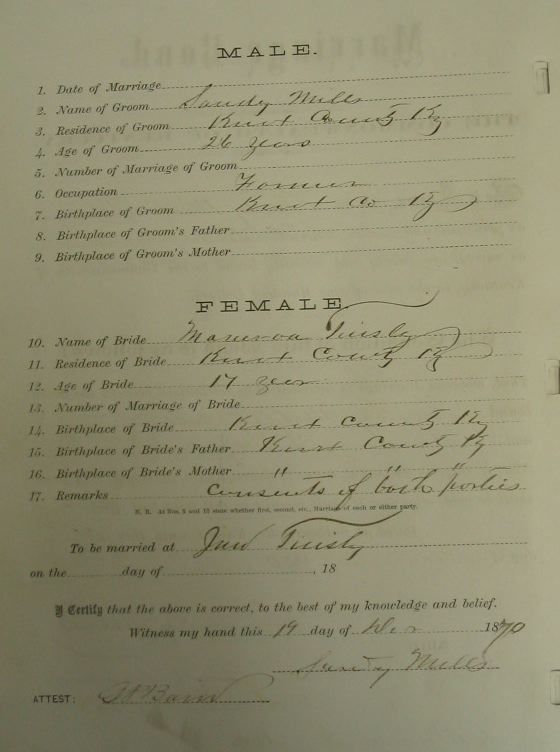 MALE.
1. Date of Marriage
2. Name of Groom Sandy Mills
3. Residence of Groom Knox County Ky
4. Age of Groom 26 years
5. Number of Marriage of Groom
6. Occupation Farmer
7. Birthplace of Groom Knox Co Ky
8. Birthplace of Groom's Father
9. Birthplace of Groom's Mother
FEMALE
10. Name of Bride Tinsly
11. Residence of Bride Knox County Ky
12. Age of Bride 17 year
13. Number of Marriage of Bride
14. Birthplace of Bride Knox County Ky
15. Birthplace of Bride's Father Knox County Ky
16. Birthplace of Bride's Mother " " "
17. Remarks consents of both parties
N. B. At Nos. 5 and 13 state whether first, second, etc., Marriage of each or either party.
To be married at Tinsly
on the day of , 18
I Certify that the above is correct, to the best of my knowledge and belief.
Witness my hand this 19 day of 1870
Sandy Mills
ATTEST: